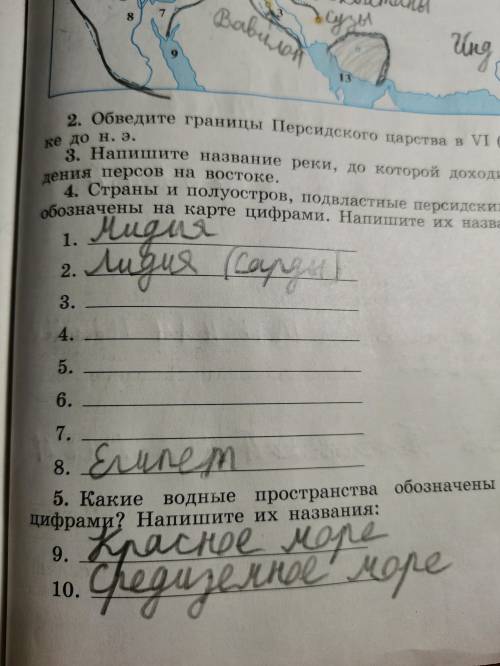 8 7 3 Сузы
Вавилон
9 13 Инд
2. Обведите границы Персидского царства в VI
ке до н. э.
3. Напишите название реки, до которой доходи
дения персов на востоке.
4. Страны и полуостров, подвластные персидски
обозначены на карте цифрами. Напишите их назва
1. Мидия
2. Лидия (Сарды)
3.
4.
5.
6.
7.
8. Египет
5. Какие водные пространства обозначены
цифрами? Напишите их названия:
9. Красное море
10. Средиземное море